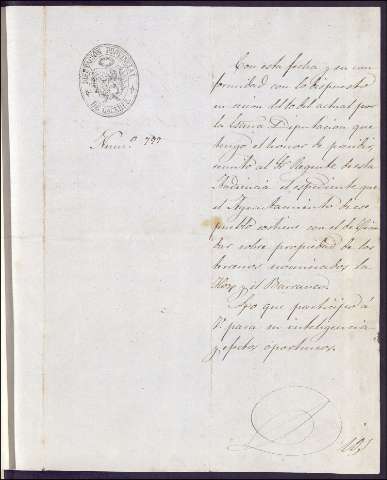 DIPUTACIÓN PROVINCIAL
Num.º 797
Con esta fecha y en con
formidad con lo dispuesto
en sesion del 6 del actual por
la Excma Diputacion que
tengo el honor de presidir,
remito al Sr Regente de esta
Audiencia el espediente que
el Ayuntamiento de ese
pueblo sostiene con el de
sobre propiedad de los
terrenos nominados la
Hoz y el Barranco.
Lo que participo á
V. para su inteligencia
y efectos oportunos.